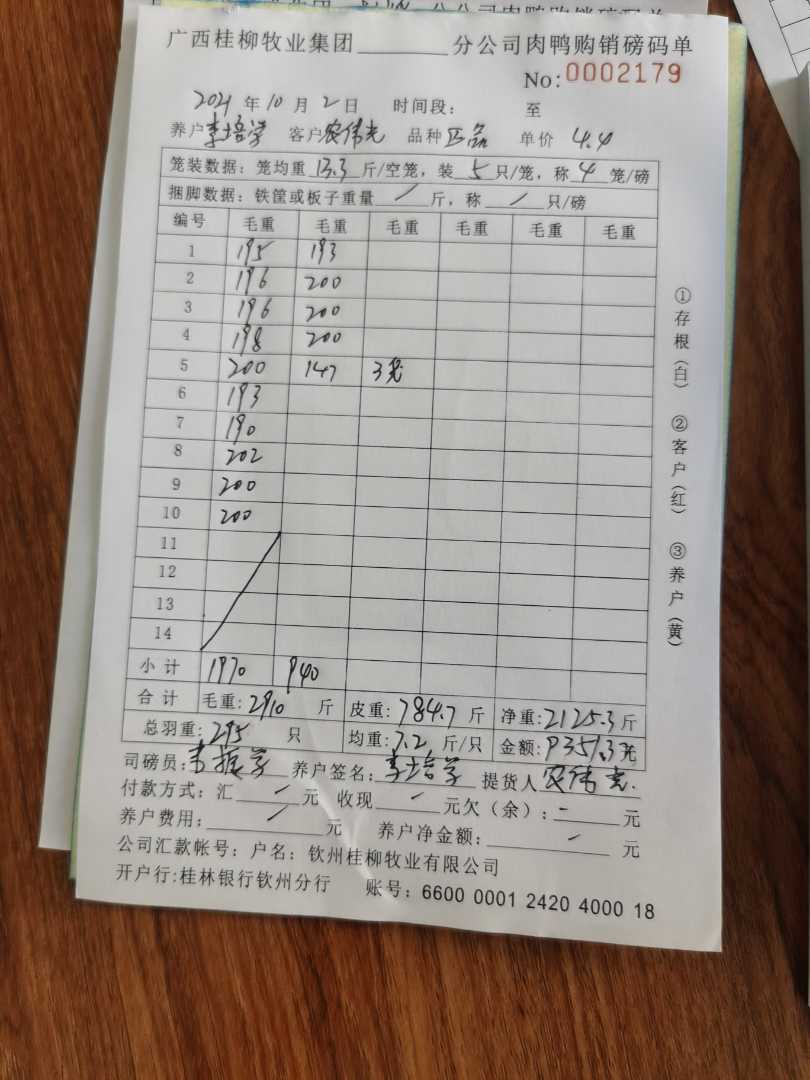 广西桂柳牧业集团________分公司肉鸭购销磅码单
No:0002179
2021 年 10 月 2 日 时间段: 至
养户李培学 客户农伟光 品种 匹品 单价 4.4
笼装数据: 笼均重 13.3 斤/空笼，装 5 只/笼，称 4 笼/磅
捆脚数据: 铁筐或板子重量 / 斤，称 / 只/磅
编号 毛重 毛重 毛重 毛重 毛重 毛重
1 195 193
2 196 200
3 196 200
4 198 200
5 200 147 3笼
6 193
7 190
8 202
9 200
10 200
11
12
13
14
小计 1970 940
合计 毛重: 2910 斤 皮重: 784.7 斤 净重: 2125.3 斤
总羽重: 295 只 均重: 7.2 斤/只 金额: 9351.3 元
司磅员: 李振学 养户签名: 李培学 提货人 农伟光.
付款方式: 汇 / 元 收现 / 元欠（余）: - 元
养户费用: / 元 养户净金额: / 元
公司汇款帐号: 户名: 钦州桂柳牧业有限公司
开户行:桂林银行钦州分行 账号: 6600 0001 2420 4000 18
①存根(白) ②客户(红) ③养户(黄)